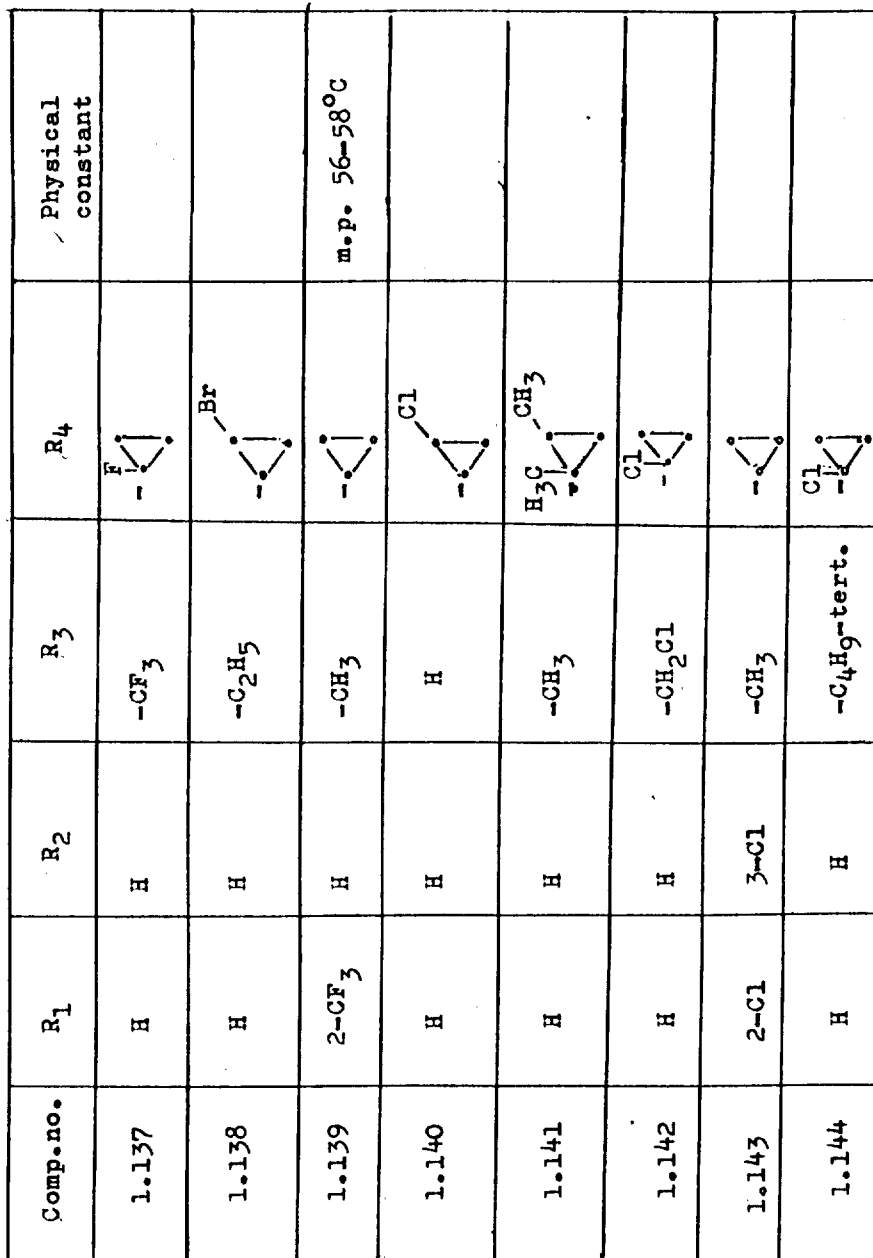 Comp.no. R1 R2 R3 R4 Physical constant
1.137 H H -CF3 F
1.138 H H -C2H5 Br
1.139 2-CF3 H -CH3 m.p. 56-58°C
1.140 H H H Cl
1.141 H H -CH3 H3C CH3
1.142 H H -CH2Cl Cl
1.143 2-Cl 3-Cl -CH3
1.144 H H -C4H9-tert. Cl